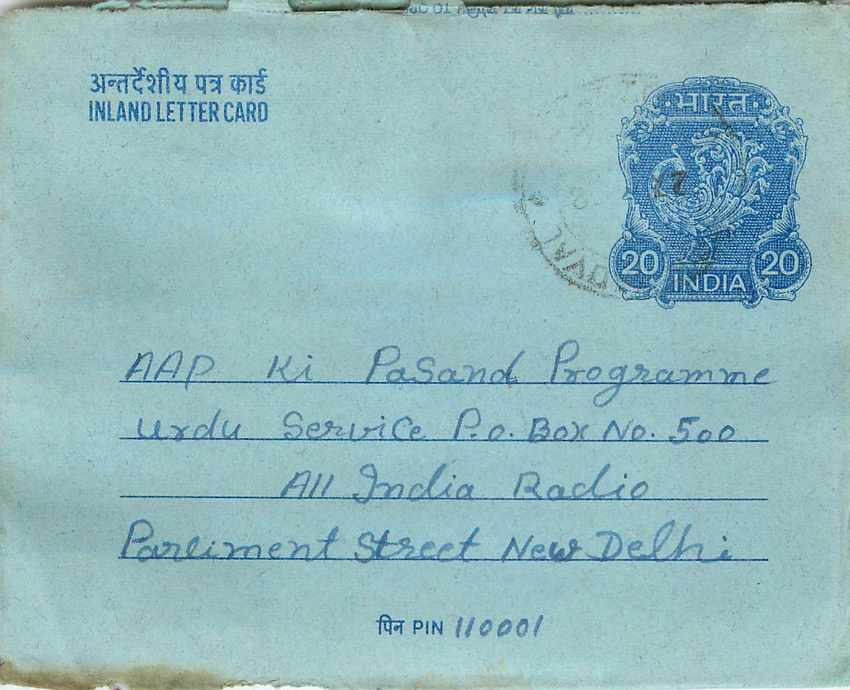 अन्तर्देशीय पत्र कार्ड
INLAND LETTER CARD
भारत
20 INDIA 20
AAP Ki Pasand Programme
Urdu Service P.o. Box No. 500
All India Radio
Parliment Street New Delhi
पिन PIN 110001